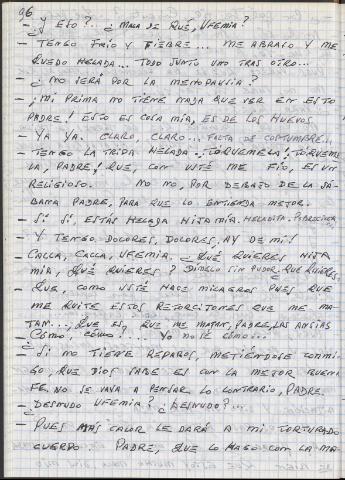 96
- ¿Y ESO?.. ¿MALA DE QUÉ, UFEMIA?
- TENGO FRÍO Y FIEBRE... ME ABRASO Y ME
QUEDO HELADA... TODO JUNTO UNO TRAS OTRO...
- ¿NO SERÁ POR LA MENOPAUSIA?
- ¡MI PRIMA NO TIENE NADA QUE VER EN ESTO
PADRE! ESTO ES COSA MIA, ES DE LOS HUEVOS
- YA YA. CLARO, CLARO... FALTA DE COSTUMBRE...
- TENGO LA TRIPA HELADA. ¡TÓQUEMELA! TÓQUEME
LA, PADRE! QUE, CON USTÉ ME FÍO, ES UN
RELIGIOSO. NO NO, POR DEBAJO DE LA SÁ-
BANA PADRE, PARA QUE LO ENTIENDA MEJOR.
- SÍ SÍ, ESTÁS HELADA HIJA MIA. HELADITA. POBRECICA
- Y TENGO DOLORES, DOLORES, AY DE MI!
- CALLA, CALLA, UFEMIA. ¿QUÉ QUIERES HIJA
MIA, QUÉ QUIERES? DIMELO SIN PUDOR ¿QUE QUIERES,
- QUE, COMO USTÉ HACE MILAGROS PUES QUE
ME QUITE ESTOS RETORCIJONES QUE ME MA-
TAN..., QUE ES, QUE ME MATAN, PADRE, LAS ANSIAS
- CÓMO, ¿CÓMO!... YO NO SÉ CÓMO...
- SI NO TIENE REPAROS, METIÉNDOSE CONMI-
GO, QUE DIOS SABE ES CON LA MEJOR BUENA
FE. NO SE VAYA A PENSAR LO CONTRARIO, PADRE.
- ¿DESNUDO UFEMIA? ¿DESNUDO?...
- PUES MAS CALOR LE DARÁ A MI TORTURADO
CUERPO. PADRE, QUE LO HAGO CON LA MA-